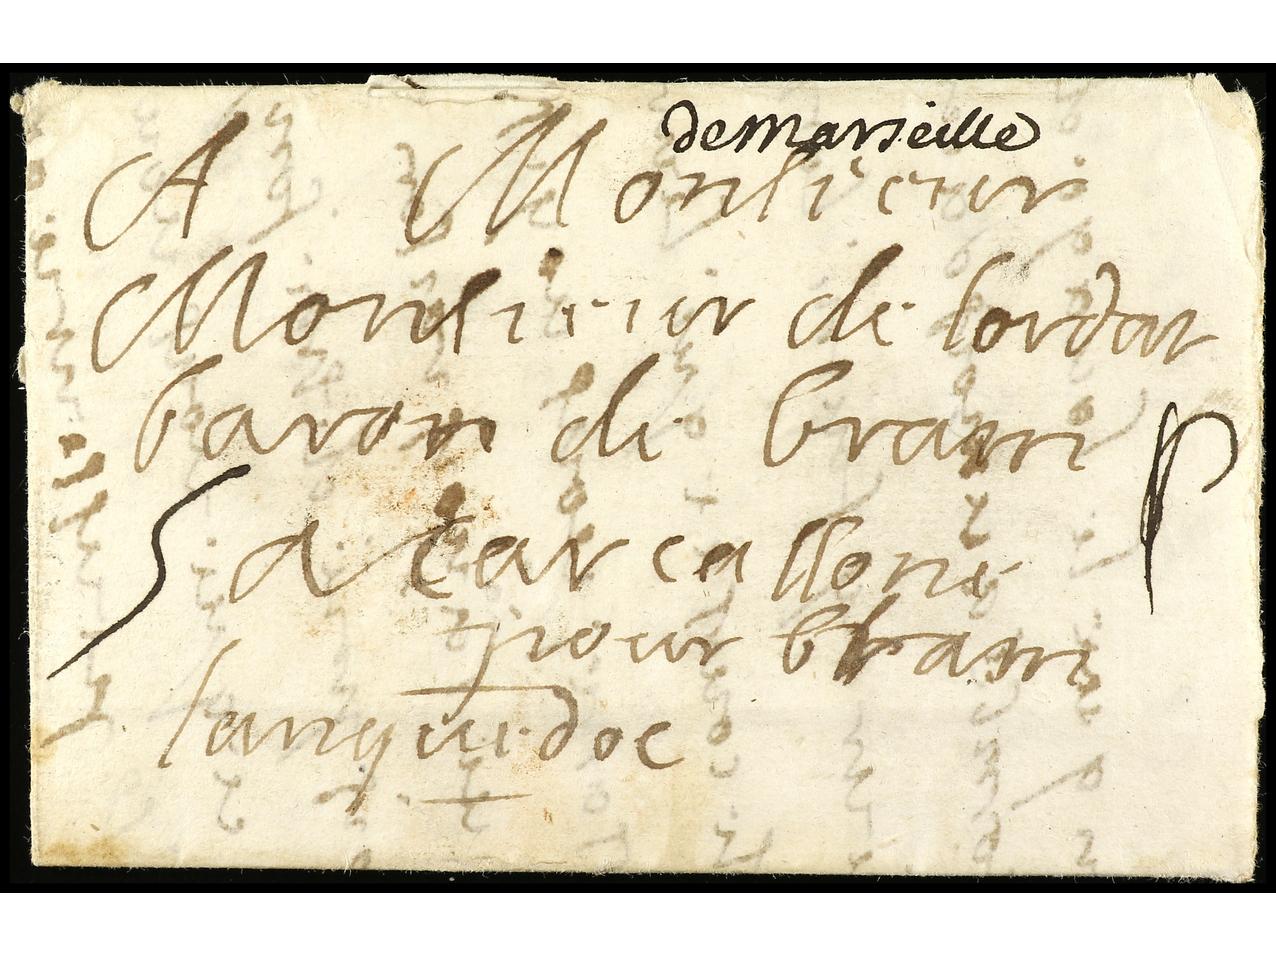 de Marseille
A Monsieur
Monsieur de lordat
baron de bram
a carcassone
pour bram
languedoc